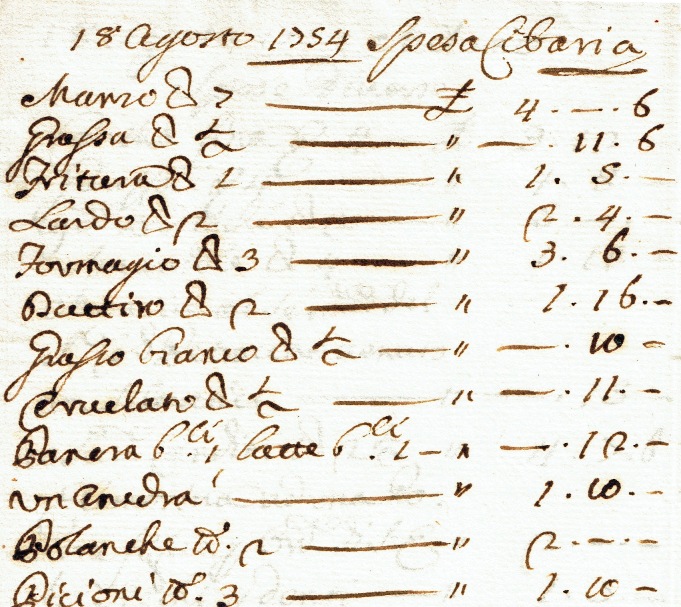 18 Agosto 1754 Spesa Cibaria
Manzo ℔ 7 — £ 4 . — . 6
Grassa ℔ ½ — " — . 11 . 6
Fritura ℔ 1 — " 1 . 5 . —
Lardo ℔ 2 — " 2 . 4 . —
Formagio ℔ 3 — " 3 . 6 . —
Buttiro ℔ 2 — " 1 . 16 . —
Grasso bianco ℔ ½ — " — . 10 —
Cervelato ℔ ½ — " — . 11 . —
Panera b.li 1 latte b.li 1 — " — . 12 . —
un Anedra — " 1 . 10 . —
Polanche 2 — " 2 . — . —
Picioni 3 — " 1 . 10 —